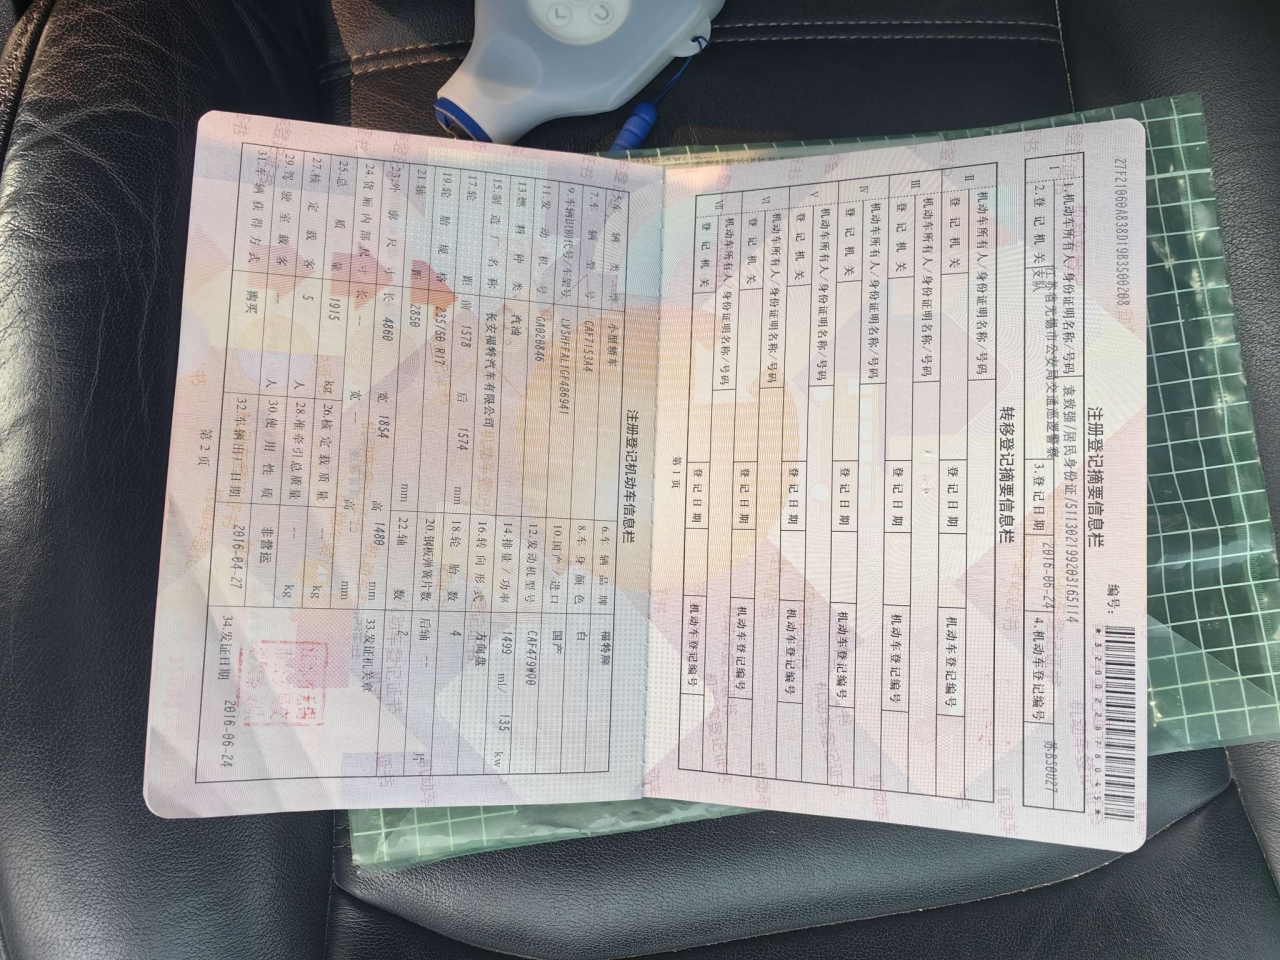 27F21060A838D19B3500208
编号：
*320022878045*
注册登记摘要信息栏
Ⅰ
1.机动车所有人/身份证明名称/号码 袁致强/居民身份证/511302199203165114
2.登记机关 江苏省无锡市公安局交通巡逻警察支队 3.登记日期 2016-06-24 4.机动车登记编号 苏B50U27
转移登记摘要信息栏
Ⅱ 机动车所有人/身份证明名称/号码
登记机关 登记日期 机动车登记编号
Ⅲ 机动车所有人/身份证明名称/号码
登记机关 登记日期 机动车登记编号
Ⅳ 机动车所有人/身份证明名称/号码
登记机关 登记日期 机动车登记编号
Ⅴ 机动车所有人/身份证明名称/号码
登记机关 登记日期 机动车登记编号
Ⅵ 机动车所有人/身份证明名称/号码
登记机关 登记日期 机动车登记编号
Ⅶ 机动车所有人/身份证明名称/号码
登记机关 登记日期 机动车登记编号
第1页
注册登记机动车信息栏
5.车辆类型 小型轿车 6.车辆品牌 福特牌
7.车辆型号 CAF7153A4 8.车身颜色 白
9.车辆识别代号/车架号 LVSHFFAL1GF486941 10.国产/进口 国产
11.发动机号 GA020846 12.发动机型号 CAF479WQ0
13.燃料种类 汽油 14.排量/功率 1499 ml/ 135 kw
15.制造厂名称 长安福特汽车有限公司 16.转向形式 方向盘
17.轮距 前 1578 后 1574 mm 18.轮胎数 4
19.轮胎规格 235/50 R17 20.钢板弹簧片数 后轴 -- 片
21.轴距 2850 mm 22.轴数 2
23.外廓尺寸 长 4860 宽 1854 高 1480 mm 33.发证机关章
24.货厢内部尺寸 长 -- 宽 高 -- mm
25.总质量 1915 kg 26.核定载质量 -- kg
27.核定载客 5 人 28.准牵引总质量 -- kg
29.驾驶室载客 -- 人 30.使用性质 非营运
31.车辆获得方式 购买 32.车辆出厂日期 2016-04-27 34.发证日期 2016-06-24
第2页